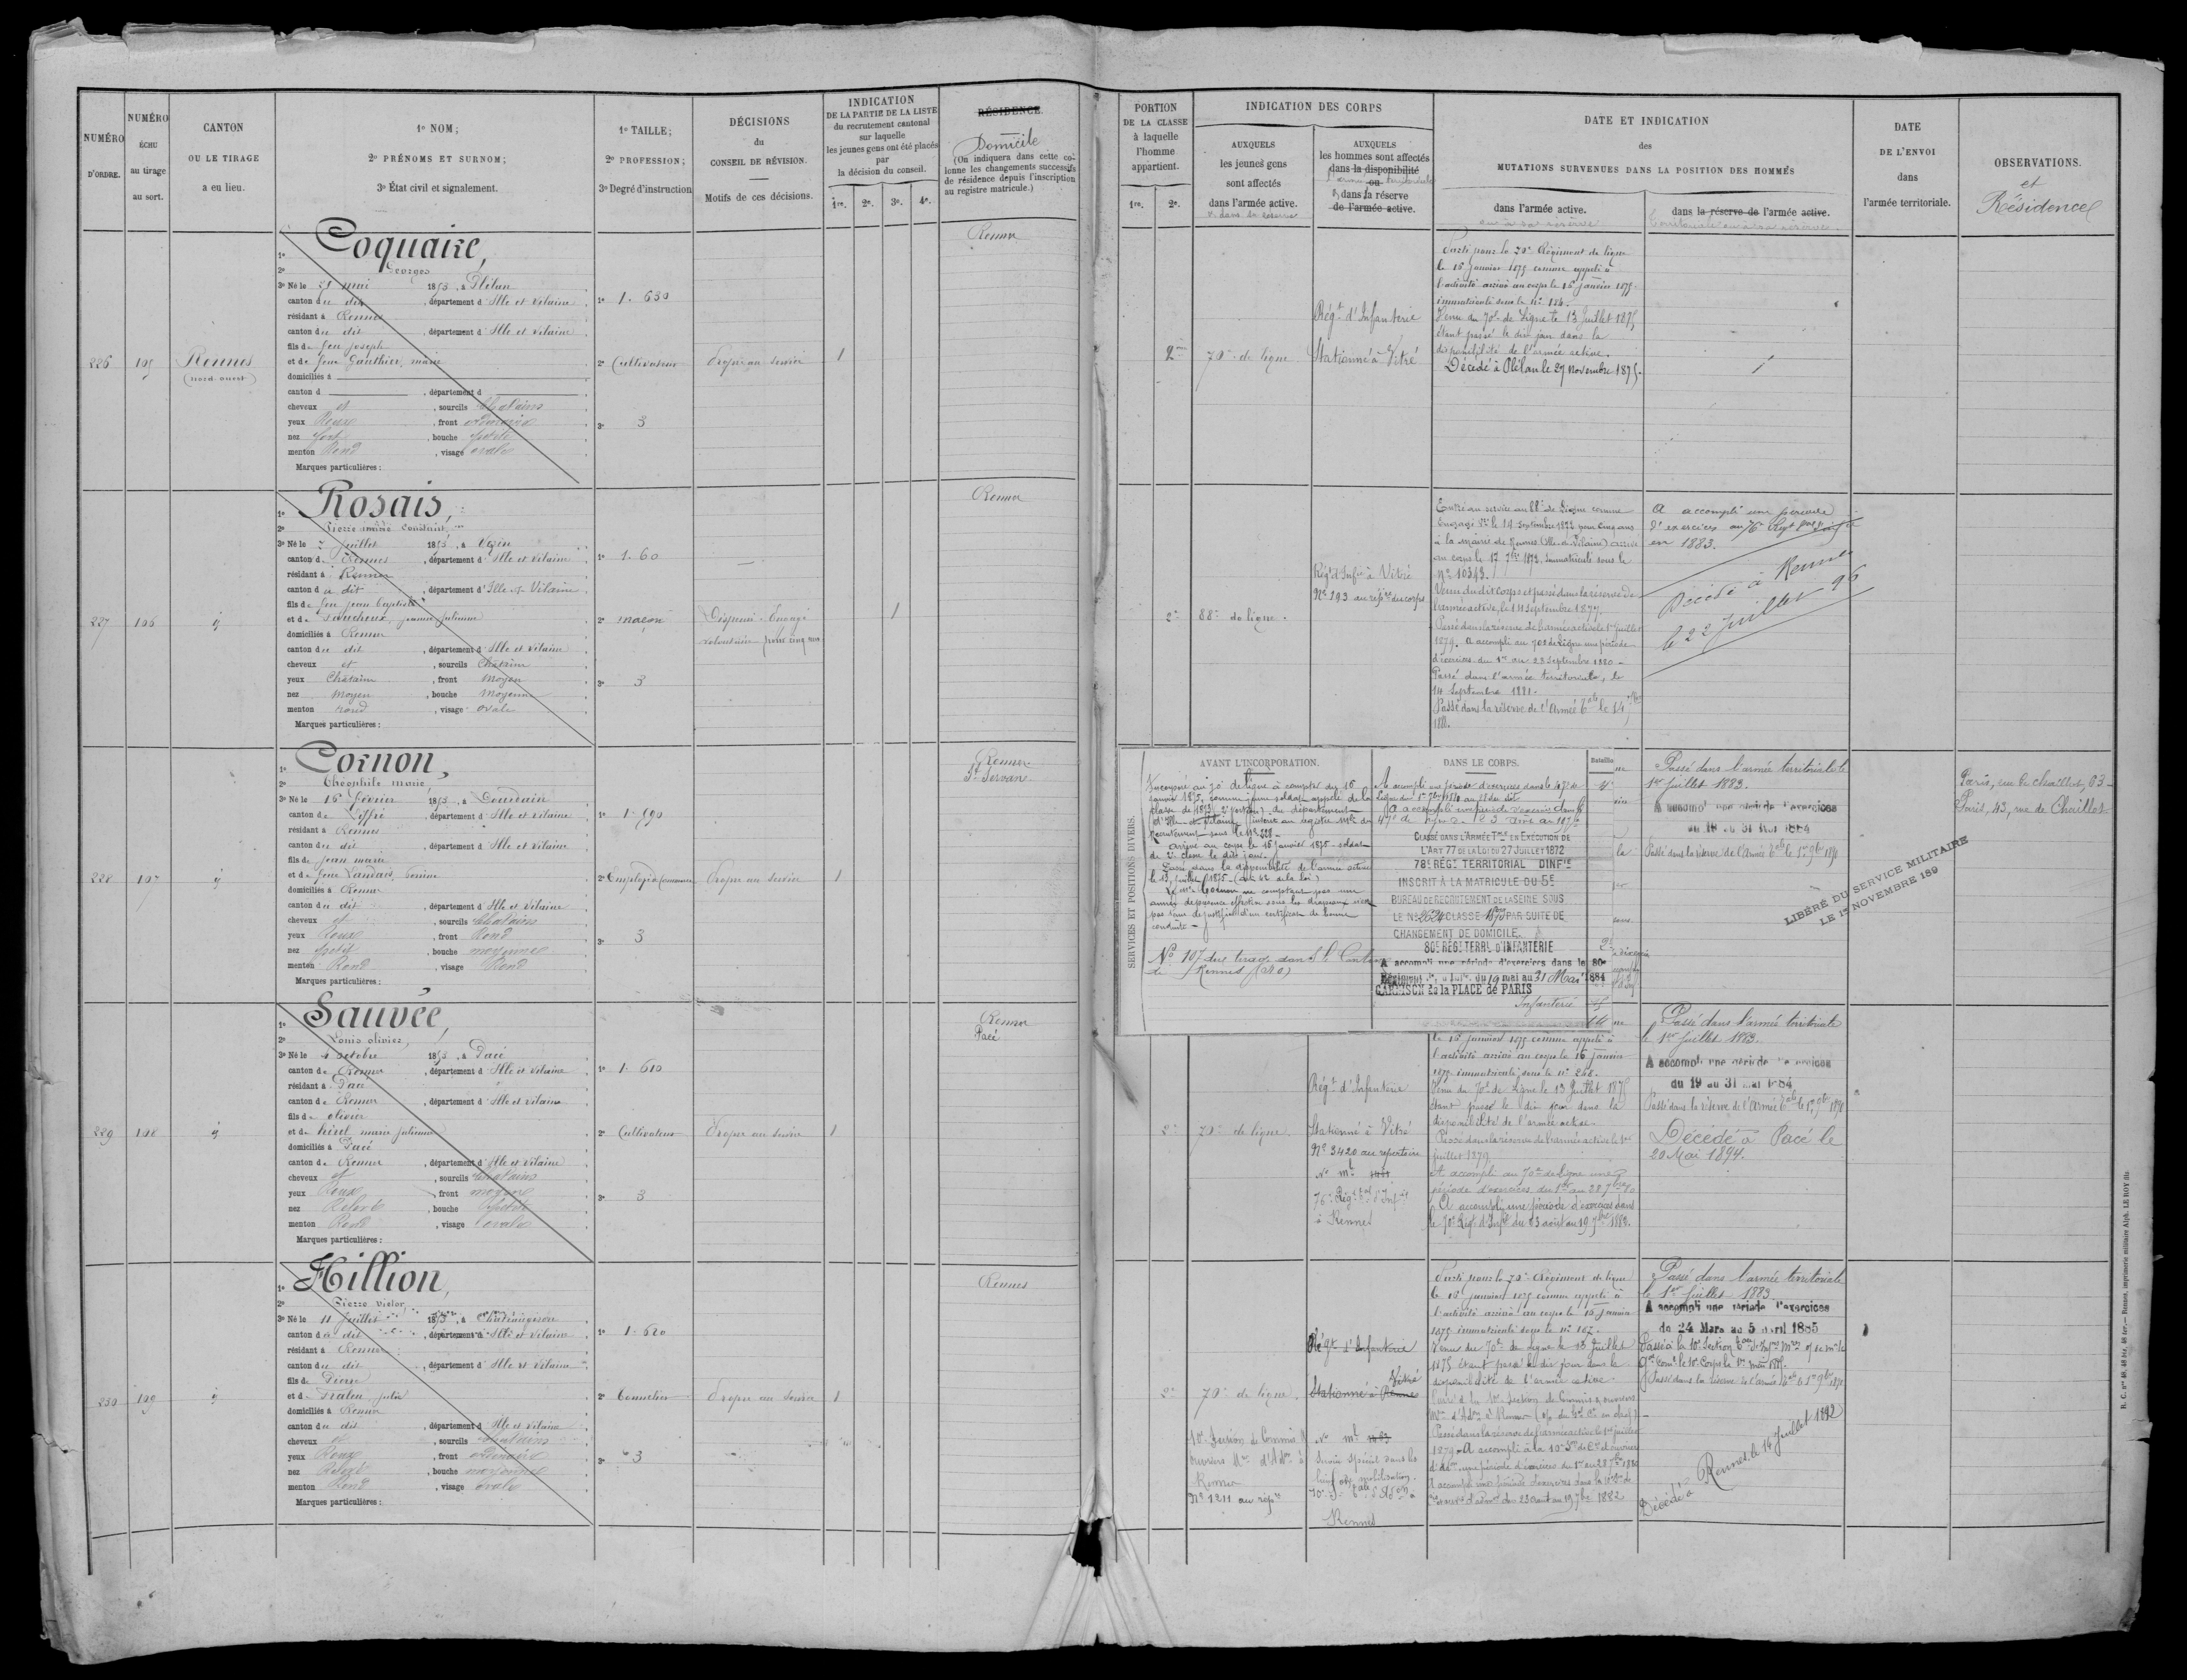 NUMÉRO
D'ORDRE.
NUMÉRO
ÉCHU
au tirage
au sort.
CANTON
OU LE TIRAGE
a eu lieu.
1º NOM;
2º PRÉNOMS ET SURNOM;
3º État civil et signalement.
1º TAILLE;
2º PROFESSION;
3º Degré d'instruction
DÉCISIONS
du
CONSEIL DE RÉVISION.
Motifs de ces décisions.
INDICATION
DE LA PARTIE DE LA LISTE
du recrutement cantonal
sur laquelle
les jeunes gens ont été placés
par
la décision du conseil.
1re. 2e. 3e. 4e.
RÉSIDENCE.
Domicile
(On indiquera dans cette co-
lonne les changements successifs
de résidence depuis l'inscription
au registre matricule.)
226
Rennes
(nord-ouest)
1º Coquaire,
2º Georges
3º Né le 21 mai 1853, à Plélan
canton du dit, département d'Ille et Vilaine
résidant à Rennes
canton du dit, département d'Ille et Vilaine
fils de feu joseph
et de feue Gauthier, marie
domiciliés à
canton d , département d
cheveux et , sourcils Chatains
yeux Roux , front ordinaire
nez fort , bouche petite
menton Rond , visage ovale
Marques particulières :
1º 1. 630
2º Cultivateur
3º 3
Propre au service
1
Rennes
227
106
1º Rosais,
2º Pierre aimé Constant
3º Né le 7 juillet 1853, à Vezin
canton de Rennes, département d'Ille et Vilaine
résidant à Rennes
canton du dit, département d'Ille et Vilaine
fils de feu jean baptiste
et de jeanne julienne
domiciliés à Rennes
canton du dit, département d'Ille et Vilaine
cheveux et , sourcils Châtains
yeux Chatains , front Moyen
nez Moyen , bouche Moyenne
menton rond , visage ovale
Marques particulières :
1º 1. 60
2º maçon
3º 3
Dispensé. Engagé
volontaire pour cinq ans
1
Rennes
228
107
1º Cornon,
2º Théophile marie,
3º Né le 16 février 1853, à Dourdain
canton de Liffré, département d'Ille et Vilaine
résidant à Rennes
canton du dit, département d'Ille et Vilaine
fils de jean marie
et de feue Landais,
domiciliés à Rennes
canton du dit, département d'Ille et Vilaine
cheveux et , sourcils Chatains
yeux Roux , front Rond
nez petit , bouche moyenne
menton Rond , visage Rond
Marques particulières :
1º 1. 590
2º Employé de Commerce
3º 3
Propre au service
1
Rennes
St Servan
229
108
1º Sauvée,
2º Louis olivier,
3º Né le 4 octobre 1853, à Pacé
canton de Rennes, département d'Ille et Vilaine
résidant à Pacé
canton de Rennes, département d'Ille et Vilaine
fils de olivier
et de marie julienne
domiciliés à Pacé
canton de Rennes, département d'Ille et Vilaine
cheveux et , sourcils Chatains
yeux Roux , front moyen
nez Relevé , bouche petite
menton Rond , visage ovale
Marques particulières :
1º 1. 610
2º Cultivateur
3º 3
Propre au service
1
Rennes
Pacé
230
109
1º Hillion,
2º Pierre victor,
3º Né le 11 juillet 1853, à Chateaugiron
canton du dit, département d'Ille et Vilaine
résidant à Rennes
canton du dit, département d'Ille et Vilaine
fils de Pierre
et de julie
domiciliés à Rennes
canton du dit, département d'Ille et Vilaine
cheveux et , sourcils Chatains
yeux Roux , front ordinaire
nez Relevé , bouche moyenne
menton Rond , visage ovale
Marques particulières :
1º 1. 620
2º Tonnelier
3º 3
Propre au service
1
Rennes
PORTION
DE LA CLASSE
à laquelle
l'homme
appartient.
1re. 2e.
INDICATION DES CORPS
AUXQUELS
les jeunes gens
sont affectés
dans l'armée active.
et dans la réserve
AUXQUELS
les hommes sont affectés
dans la disponibilité
ou
l'armée territoriale
& dans la réserve
de l'armée active.
DATE ET INDICATION
des
MUTATIONS SURVENUES DANS LA POSITION DES HOMMES
dans l'armée active.
ou à sa réserve
dans la réserve de l'armée active.
territoriale ou à sa réserve.
DATE
DE L'ENVOI
dans
l'armée territoriale.
OBSERVATIONS.
et
Résidence
2me
70e de ligne
Régt d'Infanterie
Stationné à Vitré
Parti pour le 70e Régiment de ligne
le 16 janvier 1875 comme appelé à
l'activité arrivé au corps le 16 janvier 1875
immatriculé sous le nº 184.
Venu du 70e de Ligne le 13 Juillet 1875
étant passé le dit jour dans la
disponibilité de l'armée active.
Décédé à Plélan le 27 Novembre 1875.
2e
88e de ligne.
Régt d'Infie à Vitré
Nº 193 au repre du corps
Entré au service au 88e de Ligne comme
Engagé Vre le 14 Septembre 1872 pour cinq ans
à la mairie de Rennes (Ille-et-Vilaine) arrivé
au corps le 17 7bre 1873. Immatriculé sous le
Nº 10343.
Venu du dit Corps et passé dans la réserve de
l'armée active, le 14 Septembre 1877.
Passé dans la réserve de l'armée active le 1er Juillet
1879. A accompli au 70e de Ligne une période
d'exercices du 1er au 28 Septembre 1880.
Passé dans l'armée territoriale, le
14 Septembre 1881.
Passé dans la réserve de l'Armée tale le 14 7bre
188.
A accompli une période
d'exercices au 76e Regt
en 1883.
Décédé à Rennes
le 22 juillet 96
SERVICES ET POSITIONS DIVERS.
AVANT L'INCORPORATION.
Incorporé au 70e de ligne à compter du 16
janvier 1875, comme jeune soldat appelé de la
classe de 1873 2e portion du département
d'Ille-et-Vilaine inscrit au registre mle du
recrutement sous le Nº 228
arrivé au corps le 16 janvier 1875 - soldat
de 2e classe le dit jour.
Passé dans la disponibilité de l'armée active
le 13 juillet 1875
Le Mre Cornon ne comptant pas une
année de présence effective sous les drapeaux n'est
pas tenu de justifier d'un certificat de bonne
conduite
Nº 107 du tirage dans le Canton
de Rennes (N.O)
DANS LE CORPS.
A accompli une période d'exercices dans le 47e de
Ligne du 1er 7bre 1880 au 28 du dit
A accompli une période d'exercices dans le
CLASSÉ DANS L'ARMÉE Tle EN EXÉCUTION DE
L'ART 77 DE LA LOI DU 27 JUILLET 1872
78e RÉGt TERRITORIAL D'INFie
INSCRIT À LA MATRICULE DU 5E
BUREAU DE RECRUTEMENT DE LA SEINE SOUS
LE Nº 2624 CLASSE 1873 PAR SUITE DE
CHANGEMENT DE DOMICILE.
80e RÉGt TERRl D'INFANTERIE
A accompli une période d'exercices dans le 80e
du 19 mai au 31 Mai 1884
GARNISON de la PLACE de PARIS
Infanterie
Bataillon
Passé dans l'armée territoriale le
1er juillet 1883.
A accompli une période d'exercices
du 19 au 31 Mai 1884
Passé dans la réserve de l'Armée tale le 1er 9bre 1890
LIBÉRÉ DU SERVICE MILITAIRE
LE 1er NOVEMBRE 189
Paris, rue de Chaillot, 63
Paris, 43, rue de Chaillot
2e
70e de ligne.
Régt d'Infanterie
Stationné à Vitré
Nº 3420 au repertoire
76e Régt tal d'Infie
à Rennes
le 16 janvier 1875 comme appelé à
l'activité arrivé au corps le 16 janvier
1875 immatriculé sous le nº 268.
Venu du 70e de Ligne le 13 Juillet 1875
étant passé le dit jour dans la
disponibilité de l'armée active.
Passé dans la réserve de l'armée active le 1er
juillet 1879
A accompli au 70e de ligne une
période d'exercices du 1er au 28 7bre 80
A accompli une période d'exercices dans
le 70e Régt d'Infie du 23 août au 19 7bre 1882.
Passé dans l'armée territoriale
le 1er Juillet 1883.
A accompli une période d'exercices
du 19 au 31 mai 1884
Passé dans la réserve de l'Armée tale le 1er 9bre 1890
Décédé à Pacé le
20 Mai 1894.
2e
70e de ligne.
10e Section de Commis &
ouvriers Mres d'Adon à
Rennes
Nº 1211 au repre
Régt d'Infanterie
Stationné à Rennes
Vitré
Service spécial dans les
mobilisation.
Rennes
Parti pour le 70e Régiment de ligne
le 16 janvier 1875 comme appelé à
l'activité arrivé au corps le 16 janvier
1875 immatriculé sous le nº 167.
Venu du 70e de Ligne le 13 Juillet
1875 étant passé le dit jour dans la
disponibilité de l'armée active
Passé dans la réserve de l'armée active le 1er juillet
1879. A accompli à la 10e
une période d'exercices du 1er au 28 7bre 1880
A accompli une période d'exercices dans la 10e
du 23 août au 19 7bre 1882
Passé dans l'armée territoriale
le 1er Juillet 1883
A accompli une période d'exercices
du 24 Mars au 5 avril 1885
Passé dans la réserve de l'armée tale le 1er 9bre 1890
Décédé à Rennes, le 14 Juillet 1892
R. C. nos 48, 48 bis, 48 ter. — Rennes, imprimerie militaire Alph. LE ROY fils